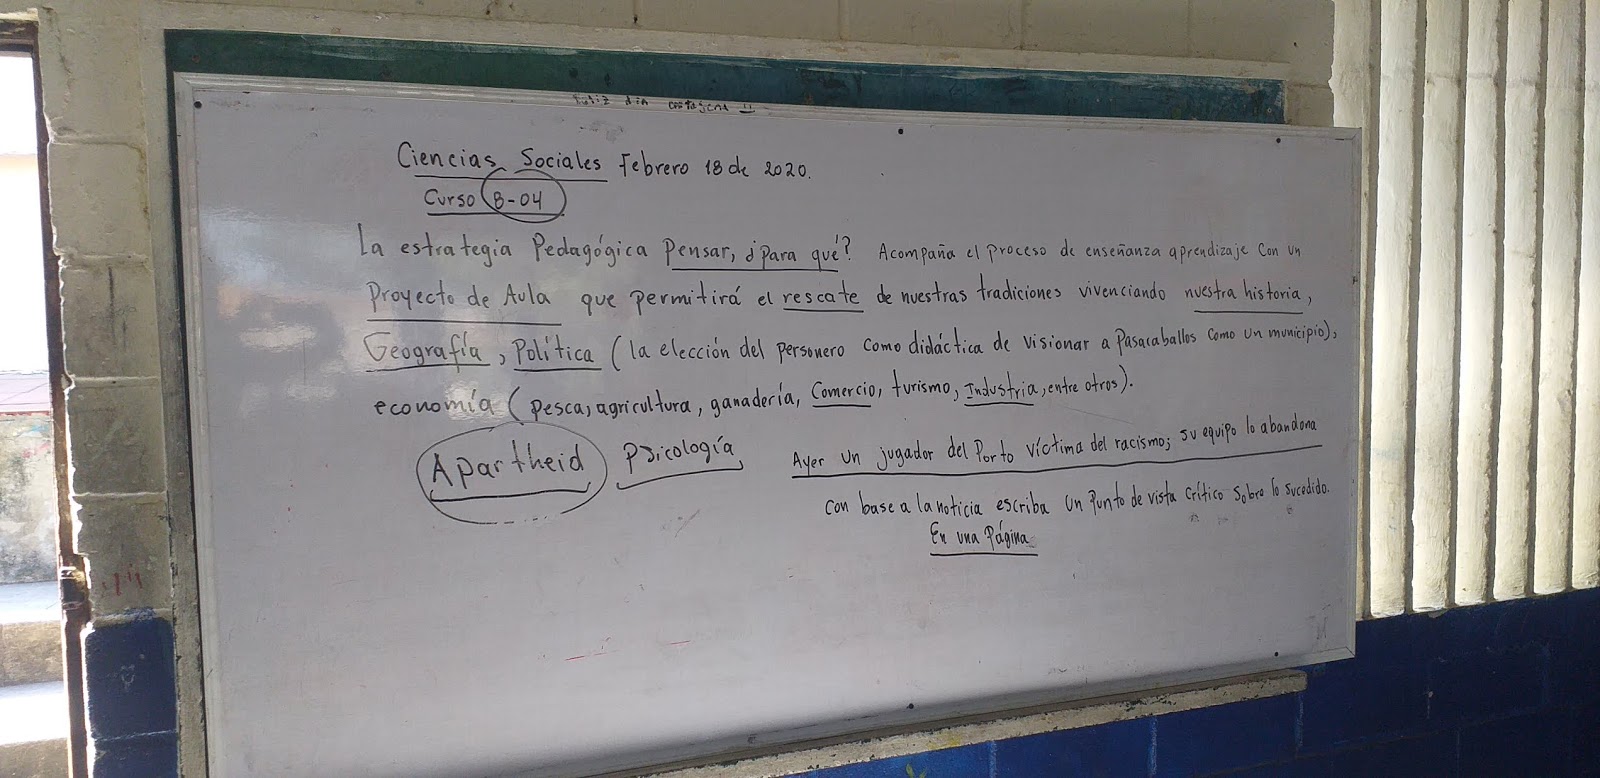 Feliz día
Ciencias Sociales Febrero 18 de 2020.
Curso 8-04
La estrategia Pedagógica Pensar, ¿Para qué? Acompaña el proceso de enseñanza aprendizaje con un
Proyecto de Aula que permitirá el rescate de nuestras tradiciones vivenciando nuestra historia,
Geografía, Política (la elección del personero como didáctica de visionar a Pasacaballos como un municipio),
economía (pesca, agricultura, ganadería, Comercio, turismo, Industria, entre otros).
Apartheid Psicología
Ayer un jugador del Porto víctima del racismo; su equipo lo abandona
con base a la noticia escriba un punto de vista crítico sobre lo sucedido.
En una Página